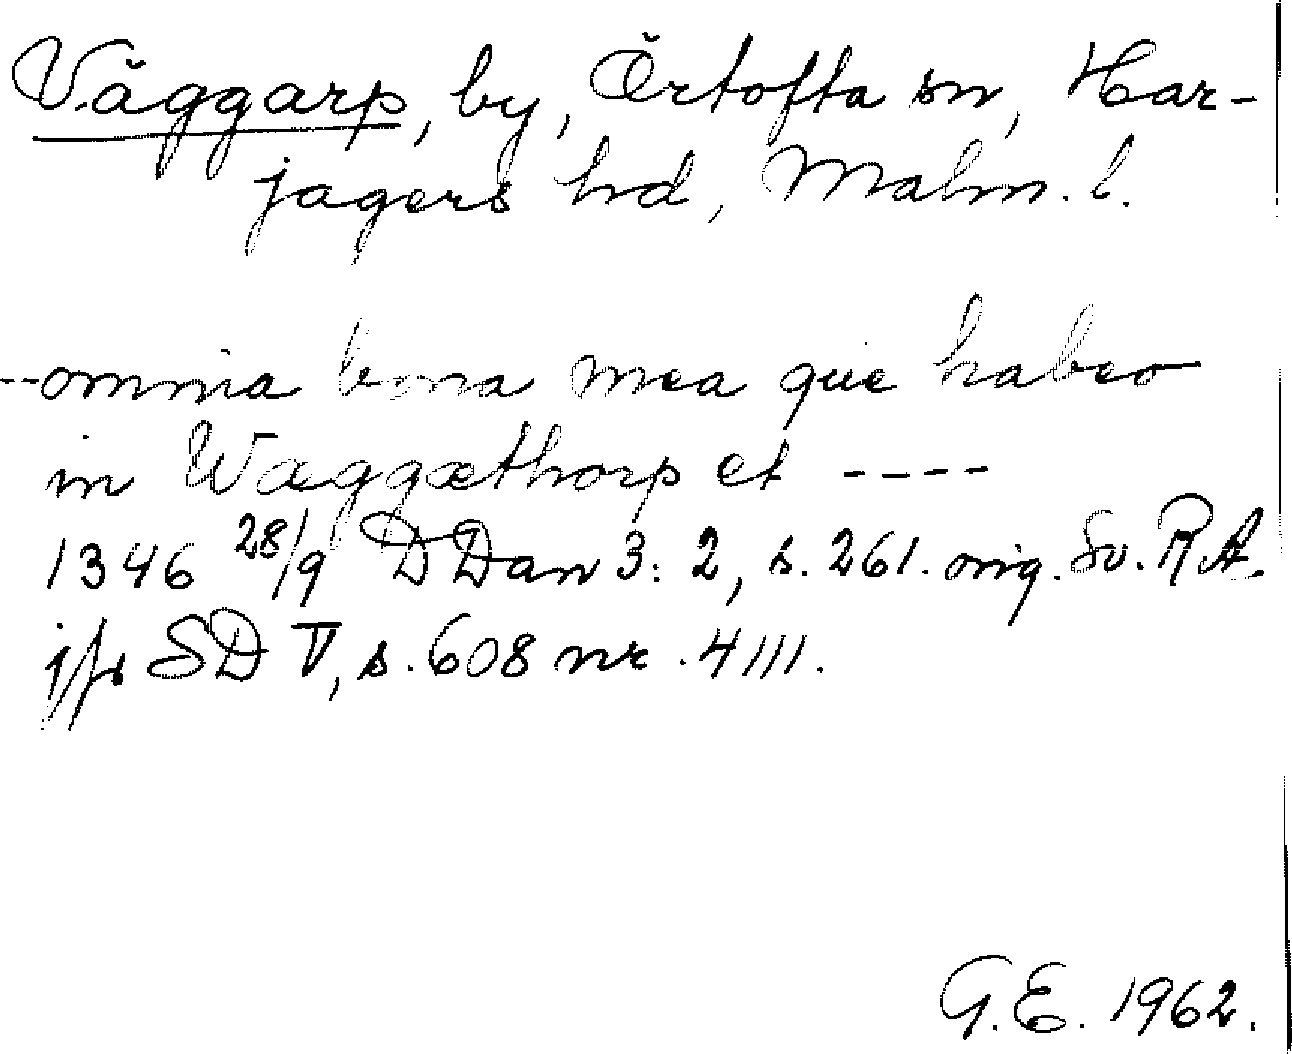 Väggarp, by, Örtofta sn, Har-
jagers hd, Malm. l.
--omnia bona mea que habeo
in Wæggæthorp et ----
1346 28/9 DDan 3: 2, s. 261. orig. Sv. R.A.
jfr SD V, s. 608 nr. 4111.
G.E. 1962.